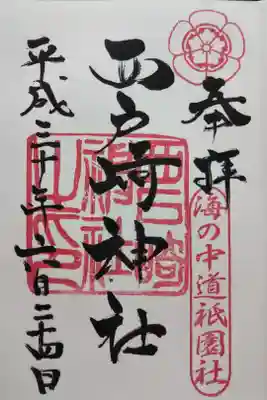 奉拝
海の中道祇園社
西戸崎神社
西戸崎神社之印
平成三十年六月二十四日